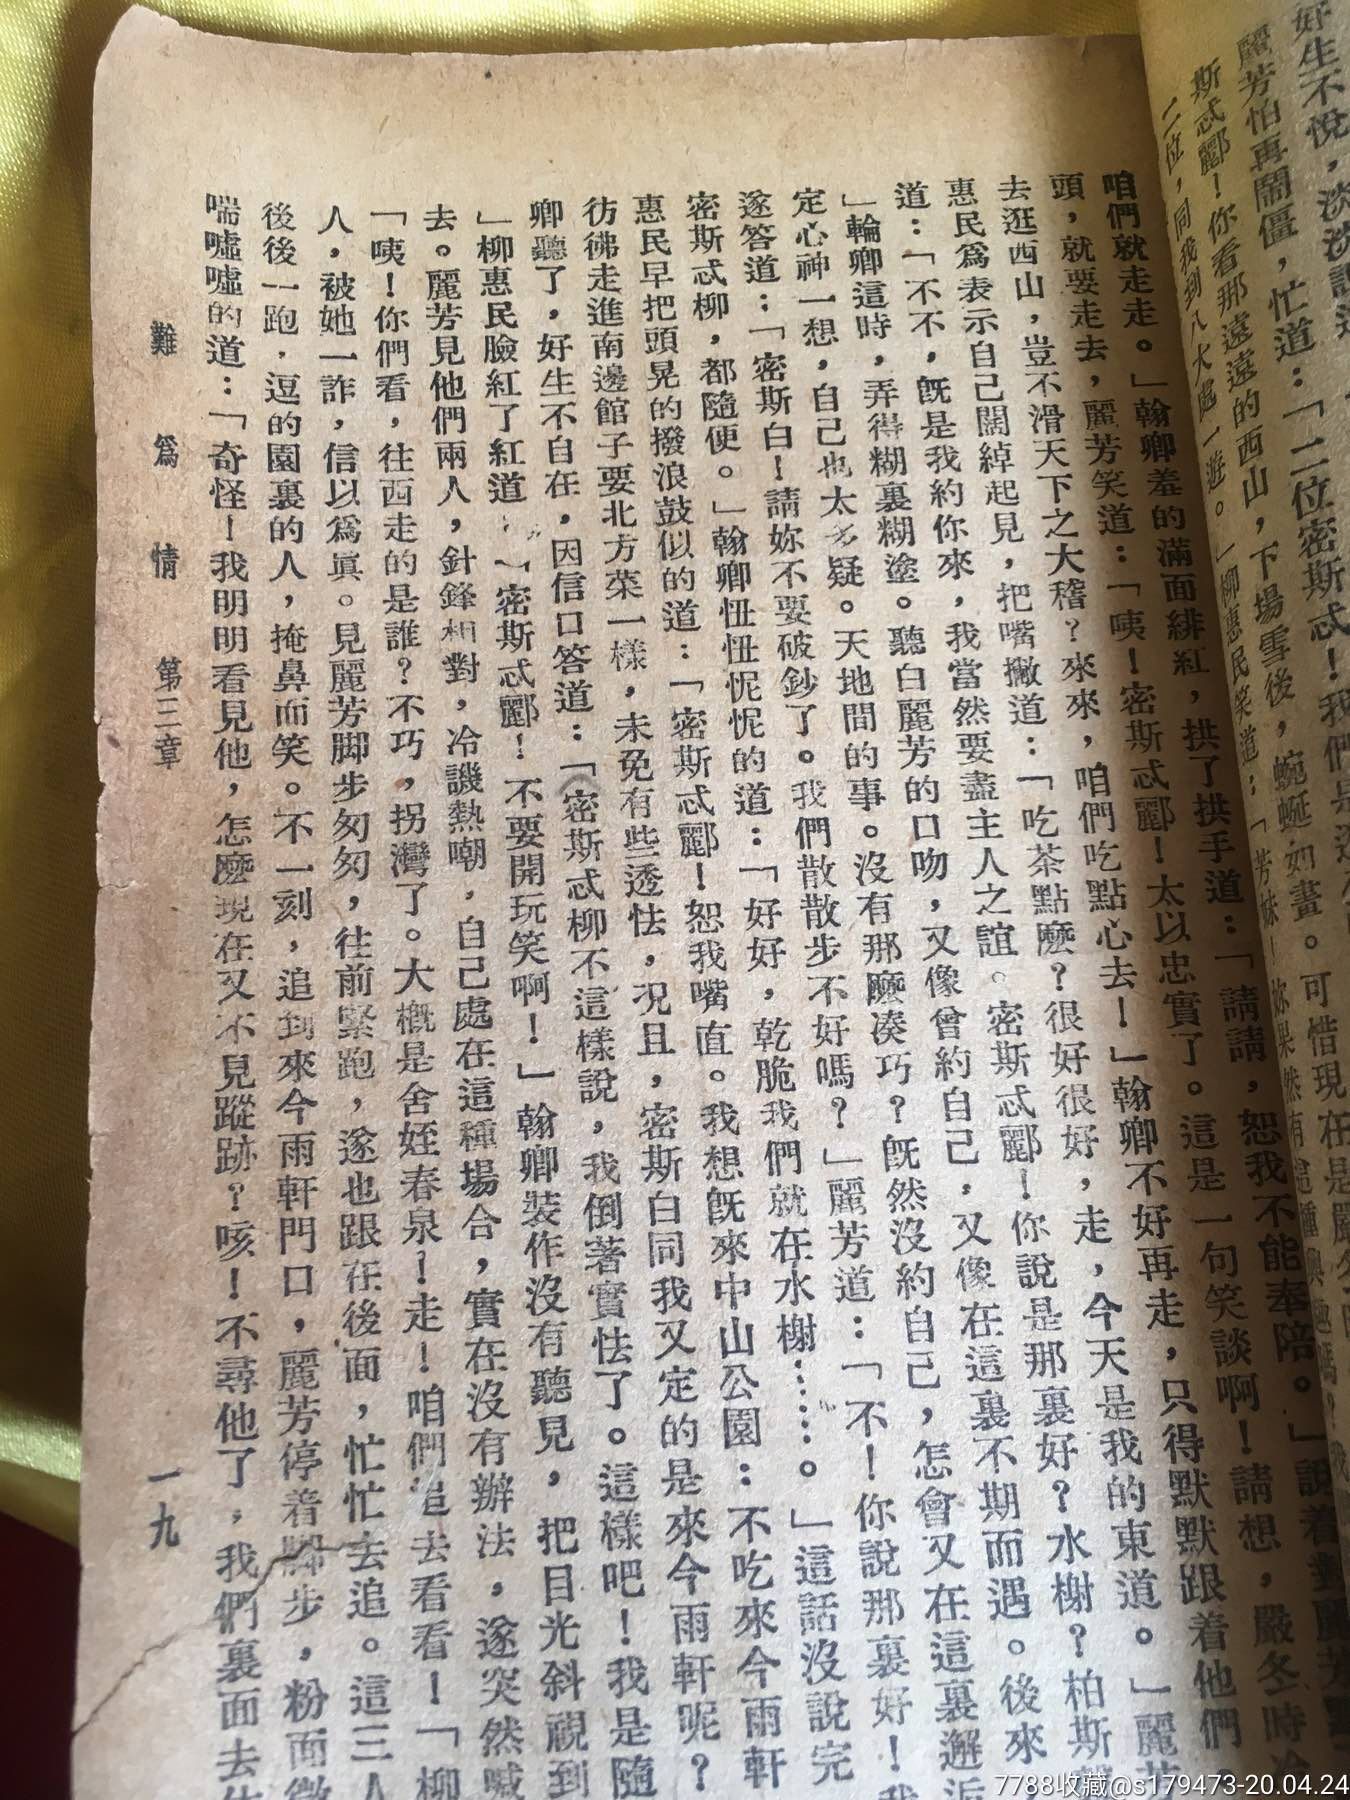 好生不悅，淡淡說道
麗芳怕再鬧僵，忙道：「二位密斯忒！我們是
斯忒酈！你看那遠遠的西山，下場雪後，蜿蜒如畫。可惜現在是嚴冬
二位，同我到八大處一遊。」柳惠民笑道：「芳妹！妳果然有這種興趣嗎？我
咱們就走走。」翰卿羞的滿面緋紅，拱了拱手道：「請請，恕我不能奉陪。」說着對麗芳點
頭，就要走去，麗芳笑道：「咦！密斯忒酈！太以忠實了。這是一句笑談啊！請想，嚴冬時冷
去逛西山，豈不滑天下之大稽？來來，咱們吃點心去！」翰卿不好再走，只得默默跟着他們。
惠民爲表示自己闊綽起見，把嘴撇道：「吃茶點麼？很好很好，走，今天是我的東道。」麗芳
道：「不不，旣是我約你來，我當然要盡主人之誼。密斯忒酈！你說是那裏好？水榭？柏斯
」輪卿這時，弄得糊裏糊塗。聽白麗芳的口吻，又像曾約自己，又像在這裏不期而遇。後來
定心神一想，自己也太多疑。天地間的事。沒有那麼湊巧？旣然沒約自己，怎會又在這裏邂逅
遂答道：「密斯白！請妳不要破鈔了。我們散散步不好嗎？」麗芳道：「不！你說那裏好！我
密斯忒柳，都隨便。」翰卿忸忸怩怩的道：「好好，乾脆我們就在水榭……。」這話沒說完
惠民早把頭晃的撥浪鼓似的道：「密斯忒酈！恕我嘴直。我想旣來中山公園：不吃來今雨軒
彷彿走進南邊館子要北方菜一樣，未免有些透怯，况且，密斯白同我又定的是來今雨軒呢？
卿聽了，好生不自在，因信口答道：「密斯忒柳不這樣說，我倒著實怯了。這樣吧！我是隨
」柳惠民臉紅了紅道，「密斯忒酈！不要開玩笑啊！」翰卿裝作沒有聽見，把目光斜視到
去。麗芳見他們兩人，針鋒相對，冷譏熱嘲，自己處在這種場合，實在沒有辦法，遂突然喊
「咦！你們看，往西走的是誰？不巧，拐灣了。大概是舍姪春泉！走！咱們追去看看！「柳
人，被她一詐，信以爲眞。見麗芳脚步匆匆，往前緊跑，遂也跟在後面，忙忙去追。這三人
後後一跑，逗的園裏的人，掩鼻而笑。不一刻，追到來今雨軒門口，麗芳停着脚步，粉面微
喘噓噓的道：「奇怪！我明明看見他，怎麼現在又不見蹤跡？咳！不尋他了，我們裏面去
難爲情 第三章 一九
7788收藏@s179473-20.04.24